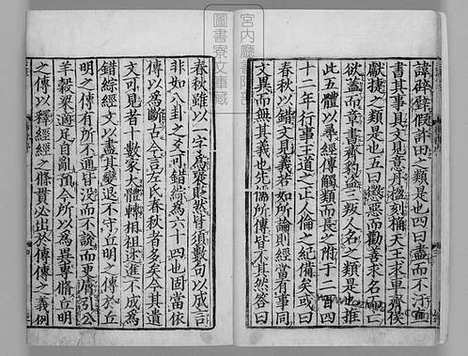 諱璧假許田之類是也四曰盡而不汙直
書其事具文見意丹楹刻桷天王求車齊侯
獻捷之類是也五曰懲惡而勸善求名而亡
欲蓋而章書齊豹盜三叛人名之類是也推
此五體以尋經傳觸類而長之附于二百四
十二年行事王道之正人倫之紀備矣或曰
春秋以錯文見義若如所論則經當有事同
文異而無其義也先儒所傳皆不其然答曰
春秋雖以一字為褒貶然皆須數句以成言
非如八卦之爻可錯綜為六十四也固當依
傳以為斷古今言左氏春秋者多矣今其遺
文可見者十數家大體轉相祖述進不成為
錯綜經文以盡其變退不守丘明之傳於丘
明之傳有所不通皆沒而不說而更膚引公
羊穀梁適足自亂預今所以為異專脩丘明
之傳以釋經經之條貫必出於傳傳之義例
宮内廳
圖書寮文庫藏